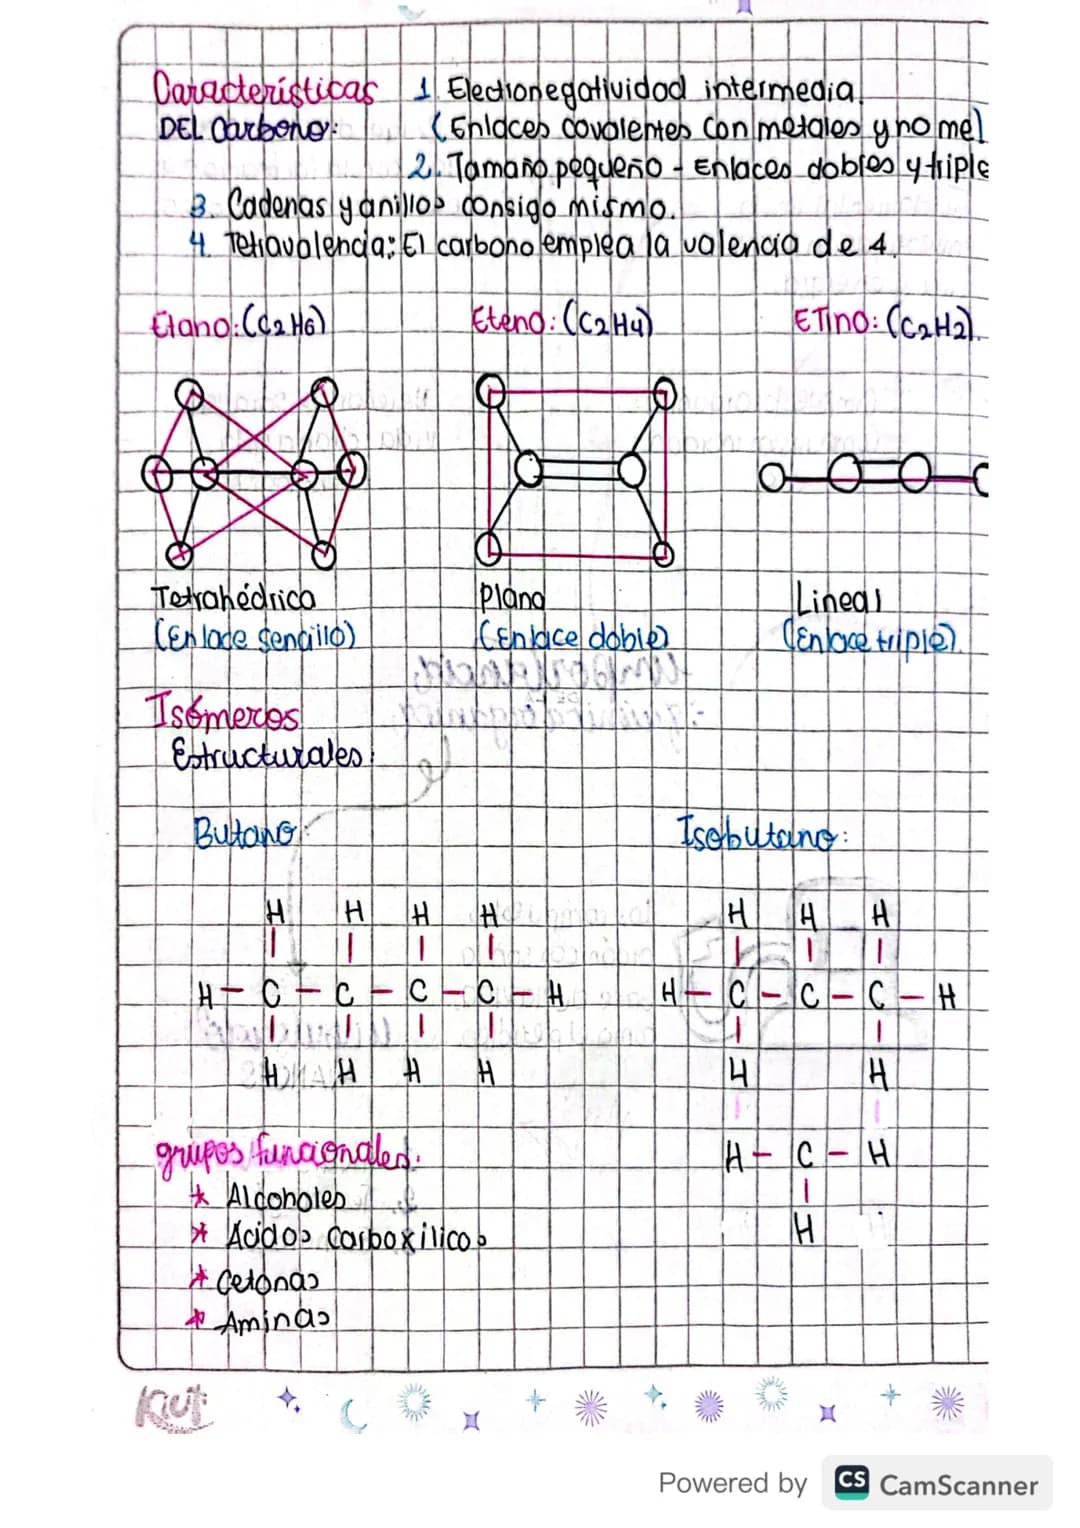 Características
DEL Carbono:
1. Electronegatividad intermedia.
(Enlaces covalentes con metales y no me
2. Tamaño pequeño - Enlaces dobles y triple
3. Cadenas y anillos consigo mismo.
4. Tetravalencia: El carbono emplea la valencia de 4.
Etano: (C2H6)
Eteno: (C2H4)
ETino: (C2H2).
Tetrahédrica
(Enlace sencillo)
Plana
(Enlace doble)
Lineal
(Enlace triple).
Isómeros
Estructurales:
Butano:
Isobutano:
H H H H
H - C - C - C - C - H
H H H H
H H H
H - C - C - C - H
H H
H - C - H
H
grupos funcionales.
* Alcoholes
* Acidos Carboxílicos
* Cetonas
* Aminas
Kiut
Powered by CS CamScanner